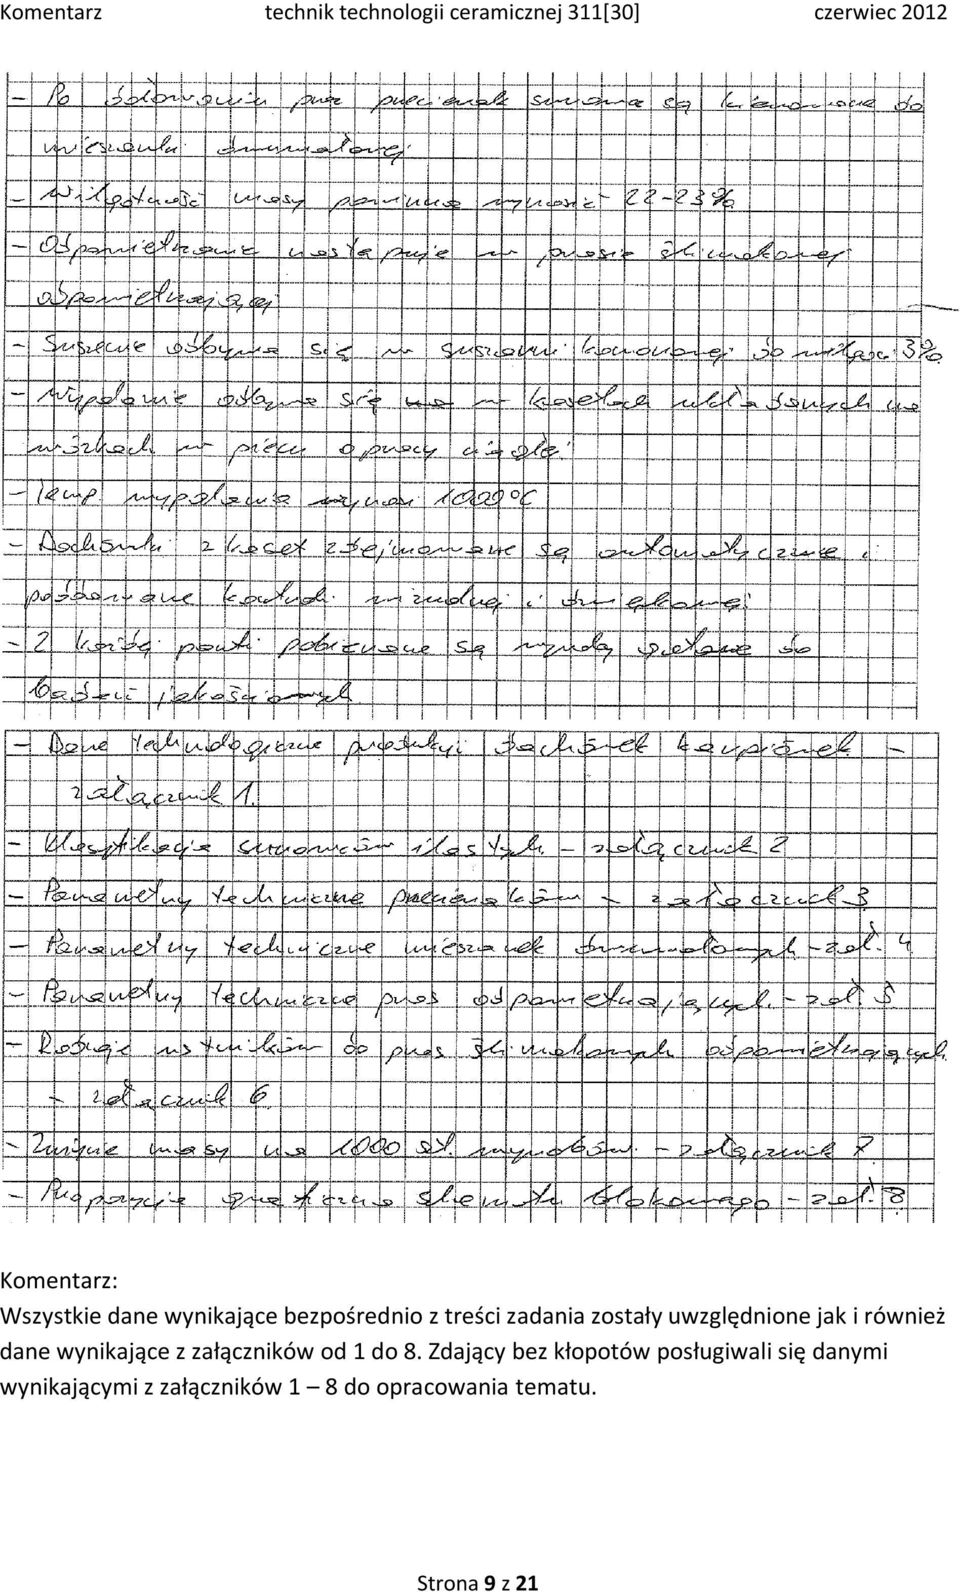 Komentarz technik technologii ceramicznej 311[30] czerwiec 2012
- Po dozowaniu przez przecierak surowce są kierowane do
mieszanki dwuwałowej
- wilgotność masy powinna wynosić 22-23%
- Odpowietrzanie następuje w prasie ślimakowej
odpowietrzającej
- Suszenie odbywa się w suszarni komorowej do wilgoci 3%
- wypalanie odbywa się w kasetach układanych na
wózkach w piecu o pracy ciągłej
- temp. wypalania wynosi 1000°C
- Dachówki z kaset zdejmowane są automatycznie i
poddawane kontroli wizualnej i dźwiękowej
- Z każdej partii pobierane są wyroby do
badań jakościowych
- Dane technologiczne produkcji dachówek karpiówek -
załącznik 1.
- Klasyfikacja surowców ilastych - załącznik 2
- Parametry techniczne przecieraków - załącznik 3
- Parametry techniczne mieszarek dwuwałowych - zał. 4
- Parametry techniczne pras odpowietrzających - zał. 5
- Rodzaje ustników do pras ślimakowych odpowietrzających
- załącznik 6
- Zużycie masy na 1000 szt. wyrobów - załącznik 7
- Propozycje graficzne schematu blokowego - zał. 8
Komentarz:
Wszystkie dane wynikające bezpośrednio z treści zadania zostały uwzględnione jak i również
dane wynikające z załączników od 1 do 8. Zdający bez kłopotów posługiwali się danymi
wynikającymi z załączników 1 – 8 do opracowania tematu.
Strona 9 z 21